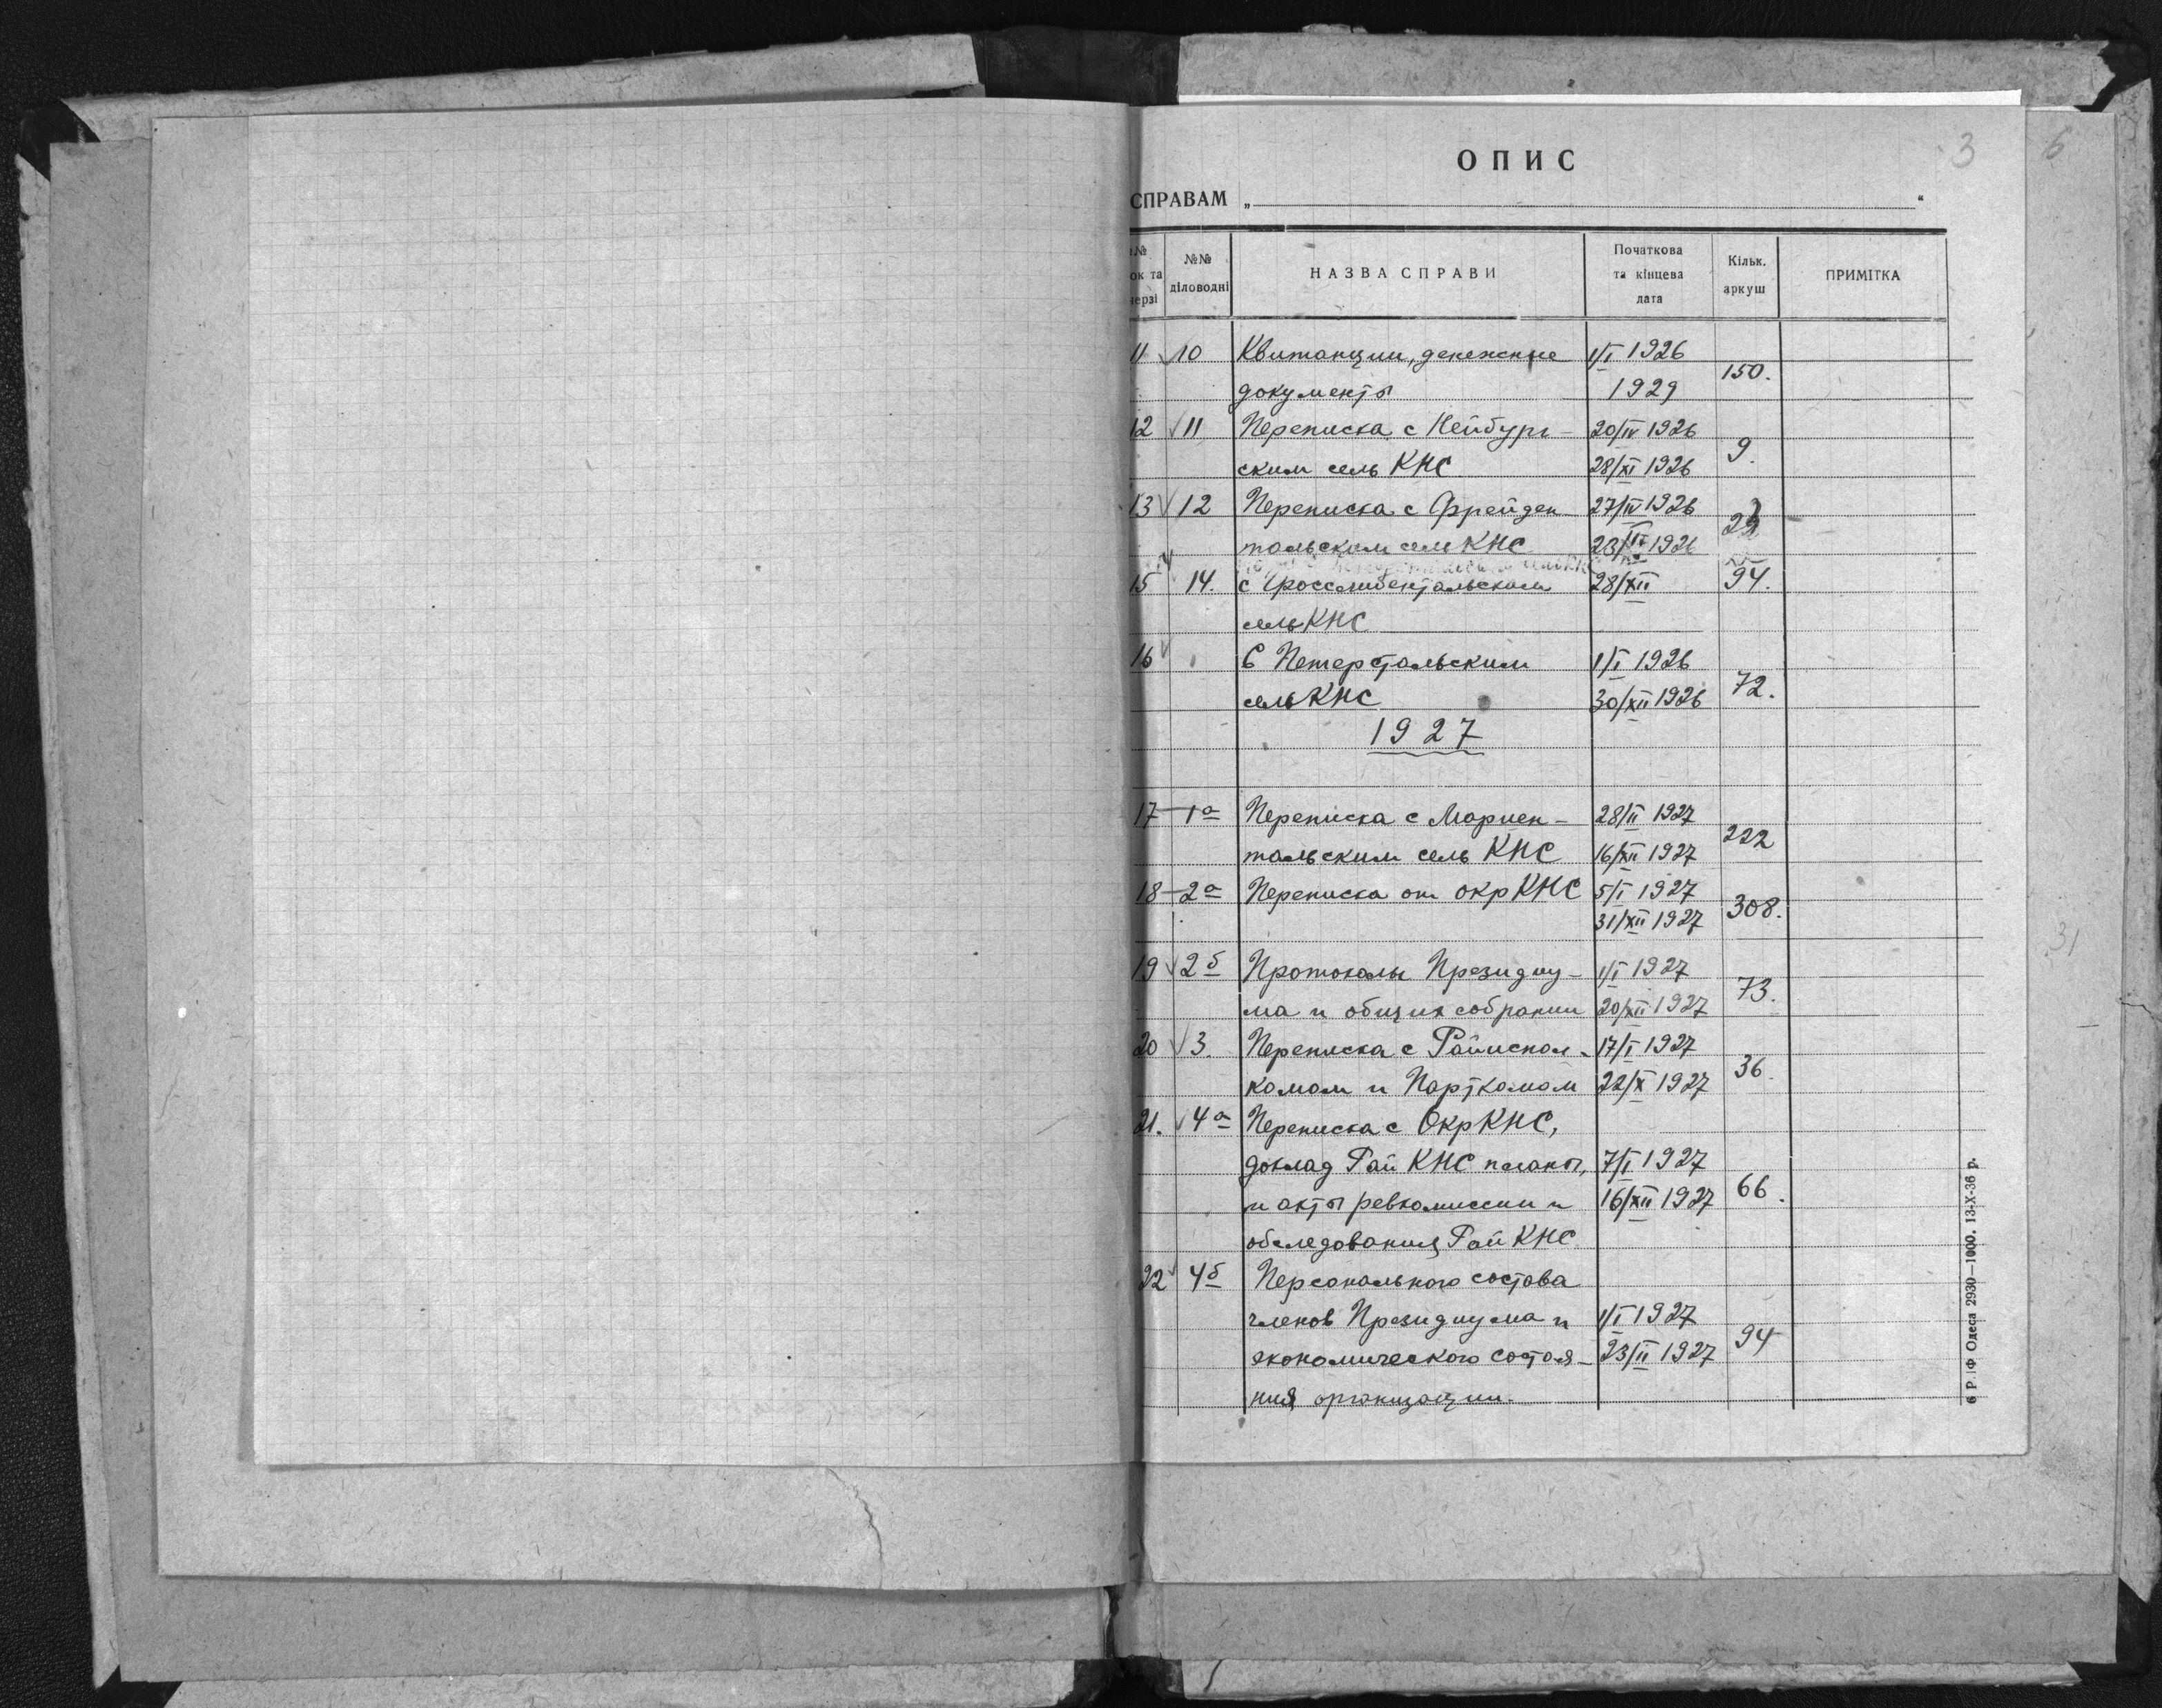 3 6
ОПИС
СПРАВАМ „ “
№№ ок та черзі
№№ діловодні
НАЗВА СПРАВИ
Початкова та кінцева дата
Кільк. аркуш
ПРИМІТКА
11 10 Квитанции, денежные 1/I 1926 150.
документы 1929
12 11 Переписка с Нейбург- 20/IV 1926 9.
ским сель КНС 28/XI 1926
13 12 Переписка с Фрейден 27/IV 1926
тальским сель КНС 1926
15 14. с Гросслибентальским 28/XII 94.
сельКНС
16 С Петерстальским 1/I 1926 72.
сельКНС 30/XII 1926
1927
17 1а Переписка с Мариен- 28/II 1927 222
тальским сель КНС 16/XII 1927
18 2а Переписка от окрКНС 5/I 1927 308.
31/XII 1927
31
19 2б Протоколы Президиу- 1/I 1927 73.
ма и общих собрании 20/XII 1927
20 3. Переписка с Райиспол- 17/I 1927 36.
комом и Парткомом 22/X 1927
21. 4а Переписка с ОкрКНС,
доклад Рай КНС планы, 7/I 1927 66.
и акты ревкомиссии и 16/XII 1927
обследования Рай КНС
22 4б Персонального состава
членов Президиума и 1/I 1927 94
экономического состоя- 23/II 1927
ния организации.
6 Р.Ф Одеса 2930—1000. 13-X-36 р.